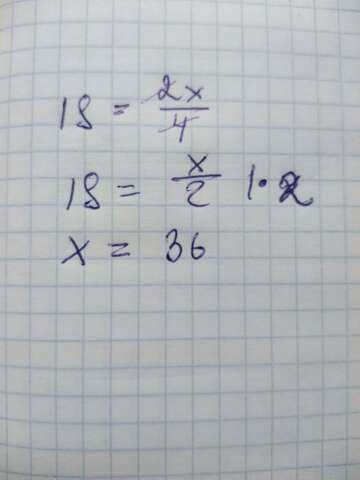 18 = 2x/4
18 = x/2 | · 2
x = 36